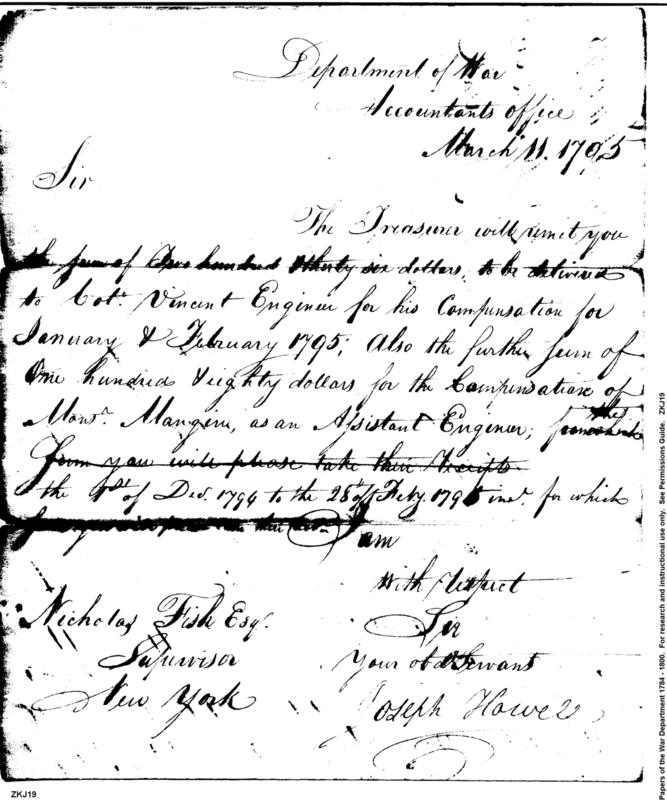 Department of War
Accountants office
March 11. 1795
Sir
The Treasurer will remit you
the sum of Two hundred & thirty six dollars, to be delivered
to Cot. Vincent Engineer for his Compensation for
January & February 1795; Also the further sum of
One hundred & eighty dollars for the Compensation of
Monsr. Mangin, as an Assistant Engineer; from
form you will please take their receipts
the 1st of Decr. 1794 to the 28th of Feby. 1795 incl. for which
you will
I am
With respect
Nicholas Fish Esqr.
Sir
Supervisor
Your obdt Servant
New York
Joseph Howell
ZKJ19
Papers of the War Department 1784 - 1800. For research and instructional use only. See Permissions Guide. ZKJ19